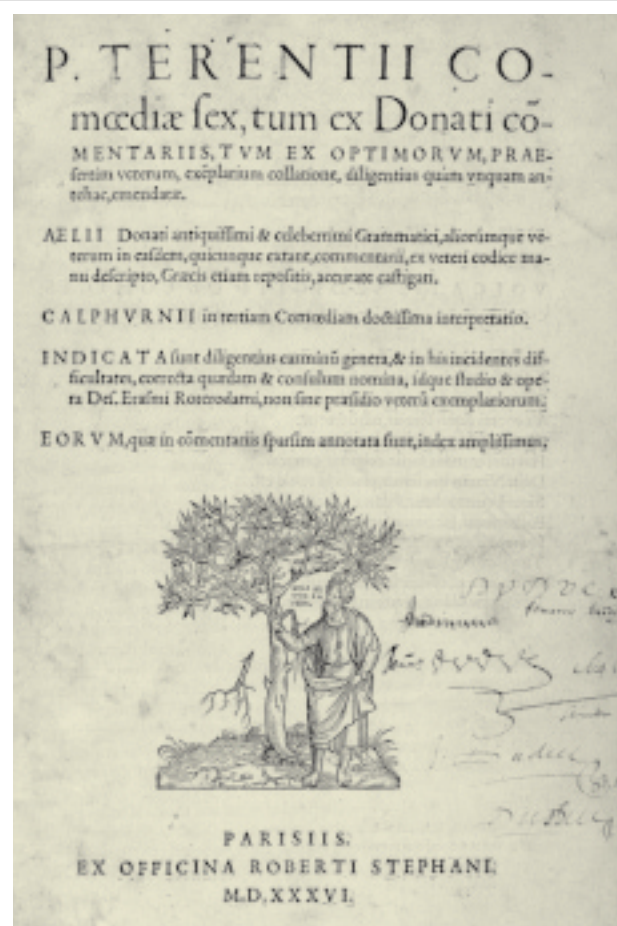 P. TERENTII CO-
mœdiæ ſex, tum ex Donati cō-
MENTARIIS, TVM EX OPTIMORVM, PRAE-
ſertim veterum, exēplarium collatione, diligentius quàm vnquam an-
tehac, emendatæ.
AELII Donati antiquiſſimi & celeberrimi Grammatici, aliorúmque ve-
terum in eaſdem, quicunque extant, commentarii, ex veteri codice ma-
nu deſcripto, Græcis etiam repoſitis, accurate caſtigati.
CALPHVRNII in tertiam Comœdiam doctiſſima interpretatio.
INDICATA ſunt diligentius carminū genera, & in his incidentes dif-
ficultates, correcta quædam & conſulum nomina, idque ſtudio & ope-
ra Deſ. Eraſmi Roterodami, non ſine præſidio veterū exemplariorum.
EORVM, quæ in cōmentariis ſparſim annotata ſunt, index ampliſſimus.
PARISIIS.
EX OFFICINA ROBERTI STEPHANI.
M.D.XXXVI.